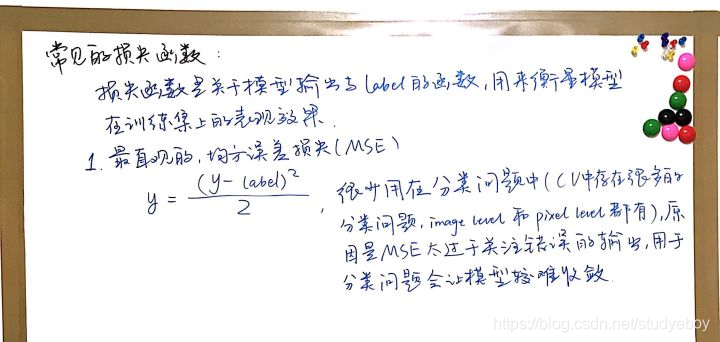 常见的损失函数：
损失函数是关于模型输出与label的函数，用来衡量模型
在训练集上的表现效果.
1. 最直观的，均方误差损失(MSE)
y = (y - label)² / 2 ，很少用在分类问题中(CV中存在很多的
分类问题，image level 和 pixel level 都有)，原
因是MSE太过于关注错误的输出，用于
分类问题会让模型较难收敛
https://blog.csdn.net/studyeboy